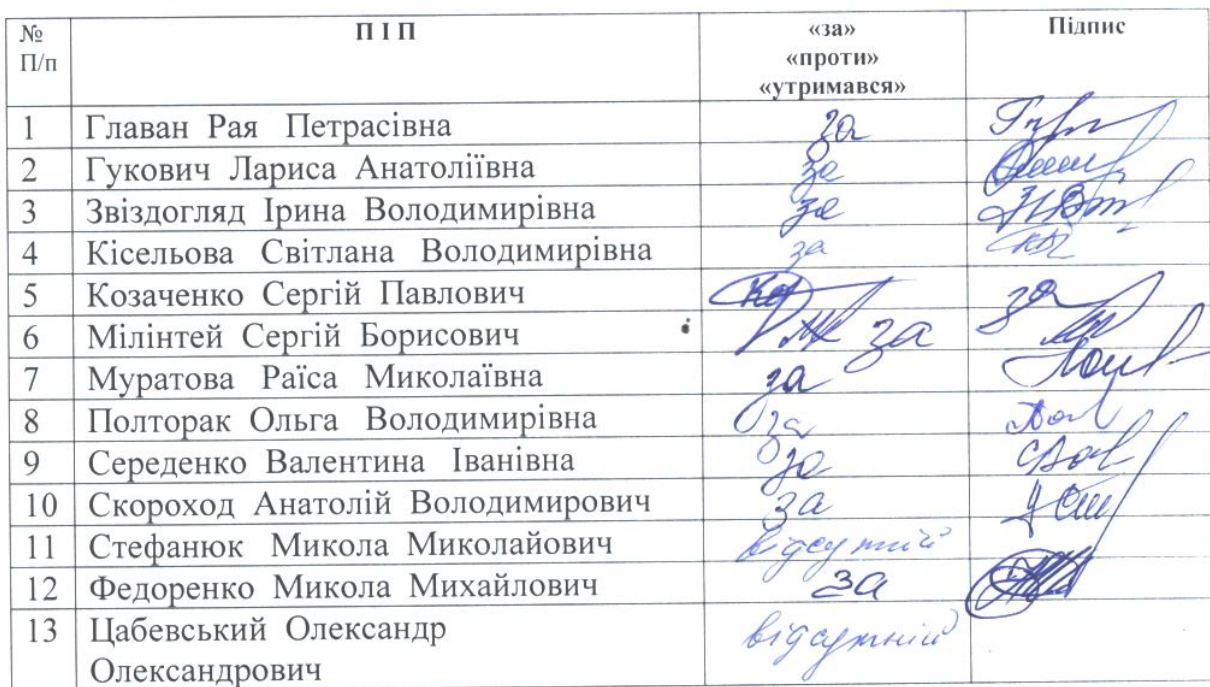 № П І П «за» Підпис
П/п «проти»
«утримався»
1 Главан Рая Петрасівна за
2 Гукович Лариса Анатоліївна за
3 Звіздогляд Ірина Володимирівна за
4 Кісельова Світлана Володимирівна за
5 Козаченко Сергій Павлович за
6 Мілінтей Сергій Борисович за
7 Муратова Раїса Миколаївна за
8 Полторак Ольга Володимирівна за
9 Середенко Валентина Іванівна за
10 Скороход Анатолій Володимирович за
11 Стефанюк Микола Миколайович відсутній
12 Федоренко Микола Михайлович за
13 Цабевський Олександр відсутній
Олександрович